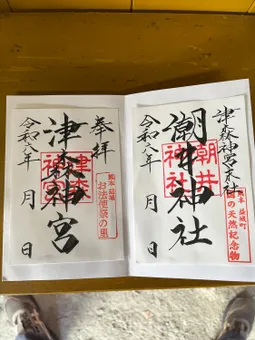 津森神宮末社
潮井神社
潮井神社
令和八年 月 日
熊本 益城町
国の天然記念物
奉拝
津森神宮
津森神宮
令和八年 月 日
熊本 益城
お法使祭の里